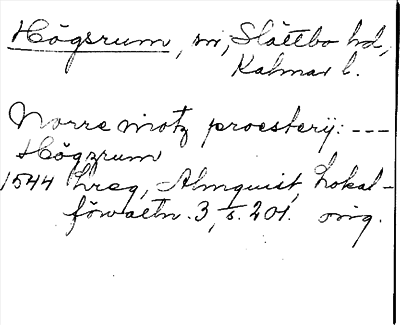 Högsrum, sn, Slättbo hd,
Kalmar l.
Norre motz proestery: ---
Högzrum
1544 Lreg, Almquist, Lokal-
förvaltn. 3, s. 201. orig.